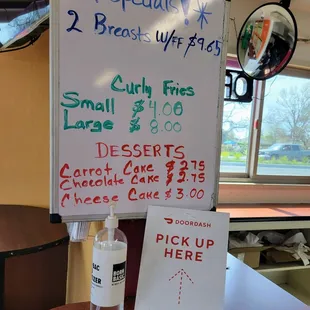 Specials! *
2 Breasts w/FF $9.65
Curly Fries
Small $4.00
Large $8.00
DESSERTS
Carrot Cake $2.75
Chocolate Cake $2.75
Cheese Cake $3.00
DOORDASH
PICK UP
HERE